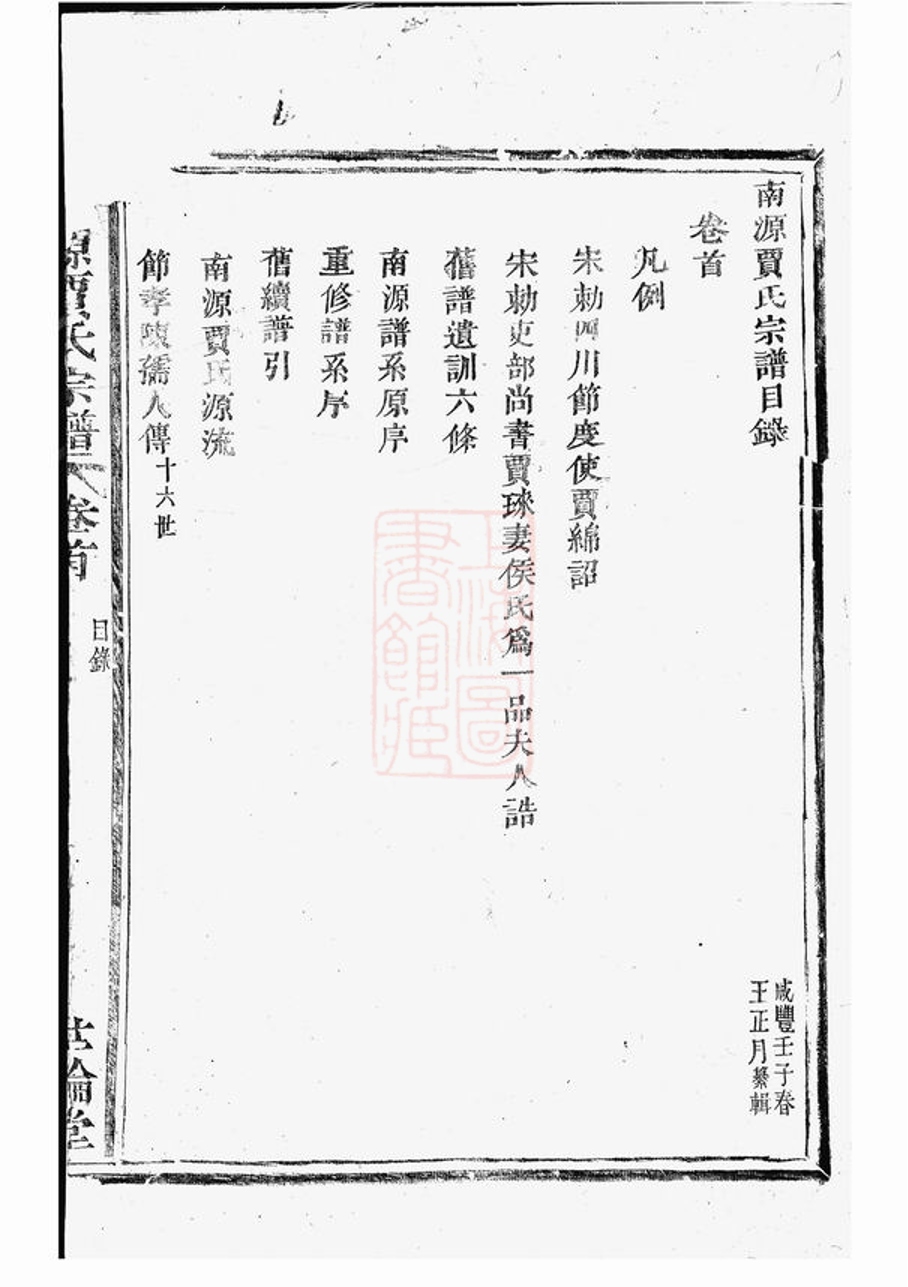 南源賈氏宗譜目錄
咸豐壬子春
王正月纂輯
卷首
凡例
宋勅四川節度使賈綿詔
宋勅吏部尚書賈琜妻侯氏爲一品夫人誥
舊譜遺訓六條
南源譜系原序
重修譜系序
舊續譜引
南源賈氏源流
節孝陳孺人傳十六世
源賈氏宗譜 卷首
目錄
世綸堂
上海圖書館藏